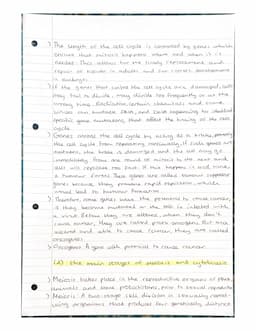 The length of the cell cycle is controlled by genes which
ensure that mitosis happens where and when it is
needed. This allows for the timely replacement and
repair of tissue in adults and for correct development
in embryos.
If the genes that control the cell cycle are damaged, cells
may fail to divide, may divide too frequently or at the
wrong time. Radiation, certain chemicals and some
viruses can mutate DNA, and
specific gene mutations that affect the timing of the cell
cycle.
Genes control the cell cycle by acting as a brake, preventing
the cell cycle from repeating continually. If such genes are
mutated, the brake is damaged and the cell may go
immediately from one round of mitosis to the next and
cells will replicate too fast. If this happens in solid tissue
a tumour forms. These genes are called tumour suppressor
genes because they prevent rapid replication, which
would lead to tumour formation.
Therefore, some genes have the potential to cause cancer,
if they become mutated or the cell is infected with
a virus. Before they are altered, when they don't
cause cancer, they are called proto oncogenes. But once
altered and able to cause cancer, they are called
oncogenes.
Oncogene: A gene with potential to cause cancer.
(d) the main stages of meiosis and cytokinesis
Meiosis takes place in the reproductive organs of plants,
animals and some protoctistans, prior to sexual reproduction.
Meiosis: A two-stage cell division in sexually repro-
ducing organisms that produces four genetically distinct